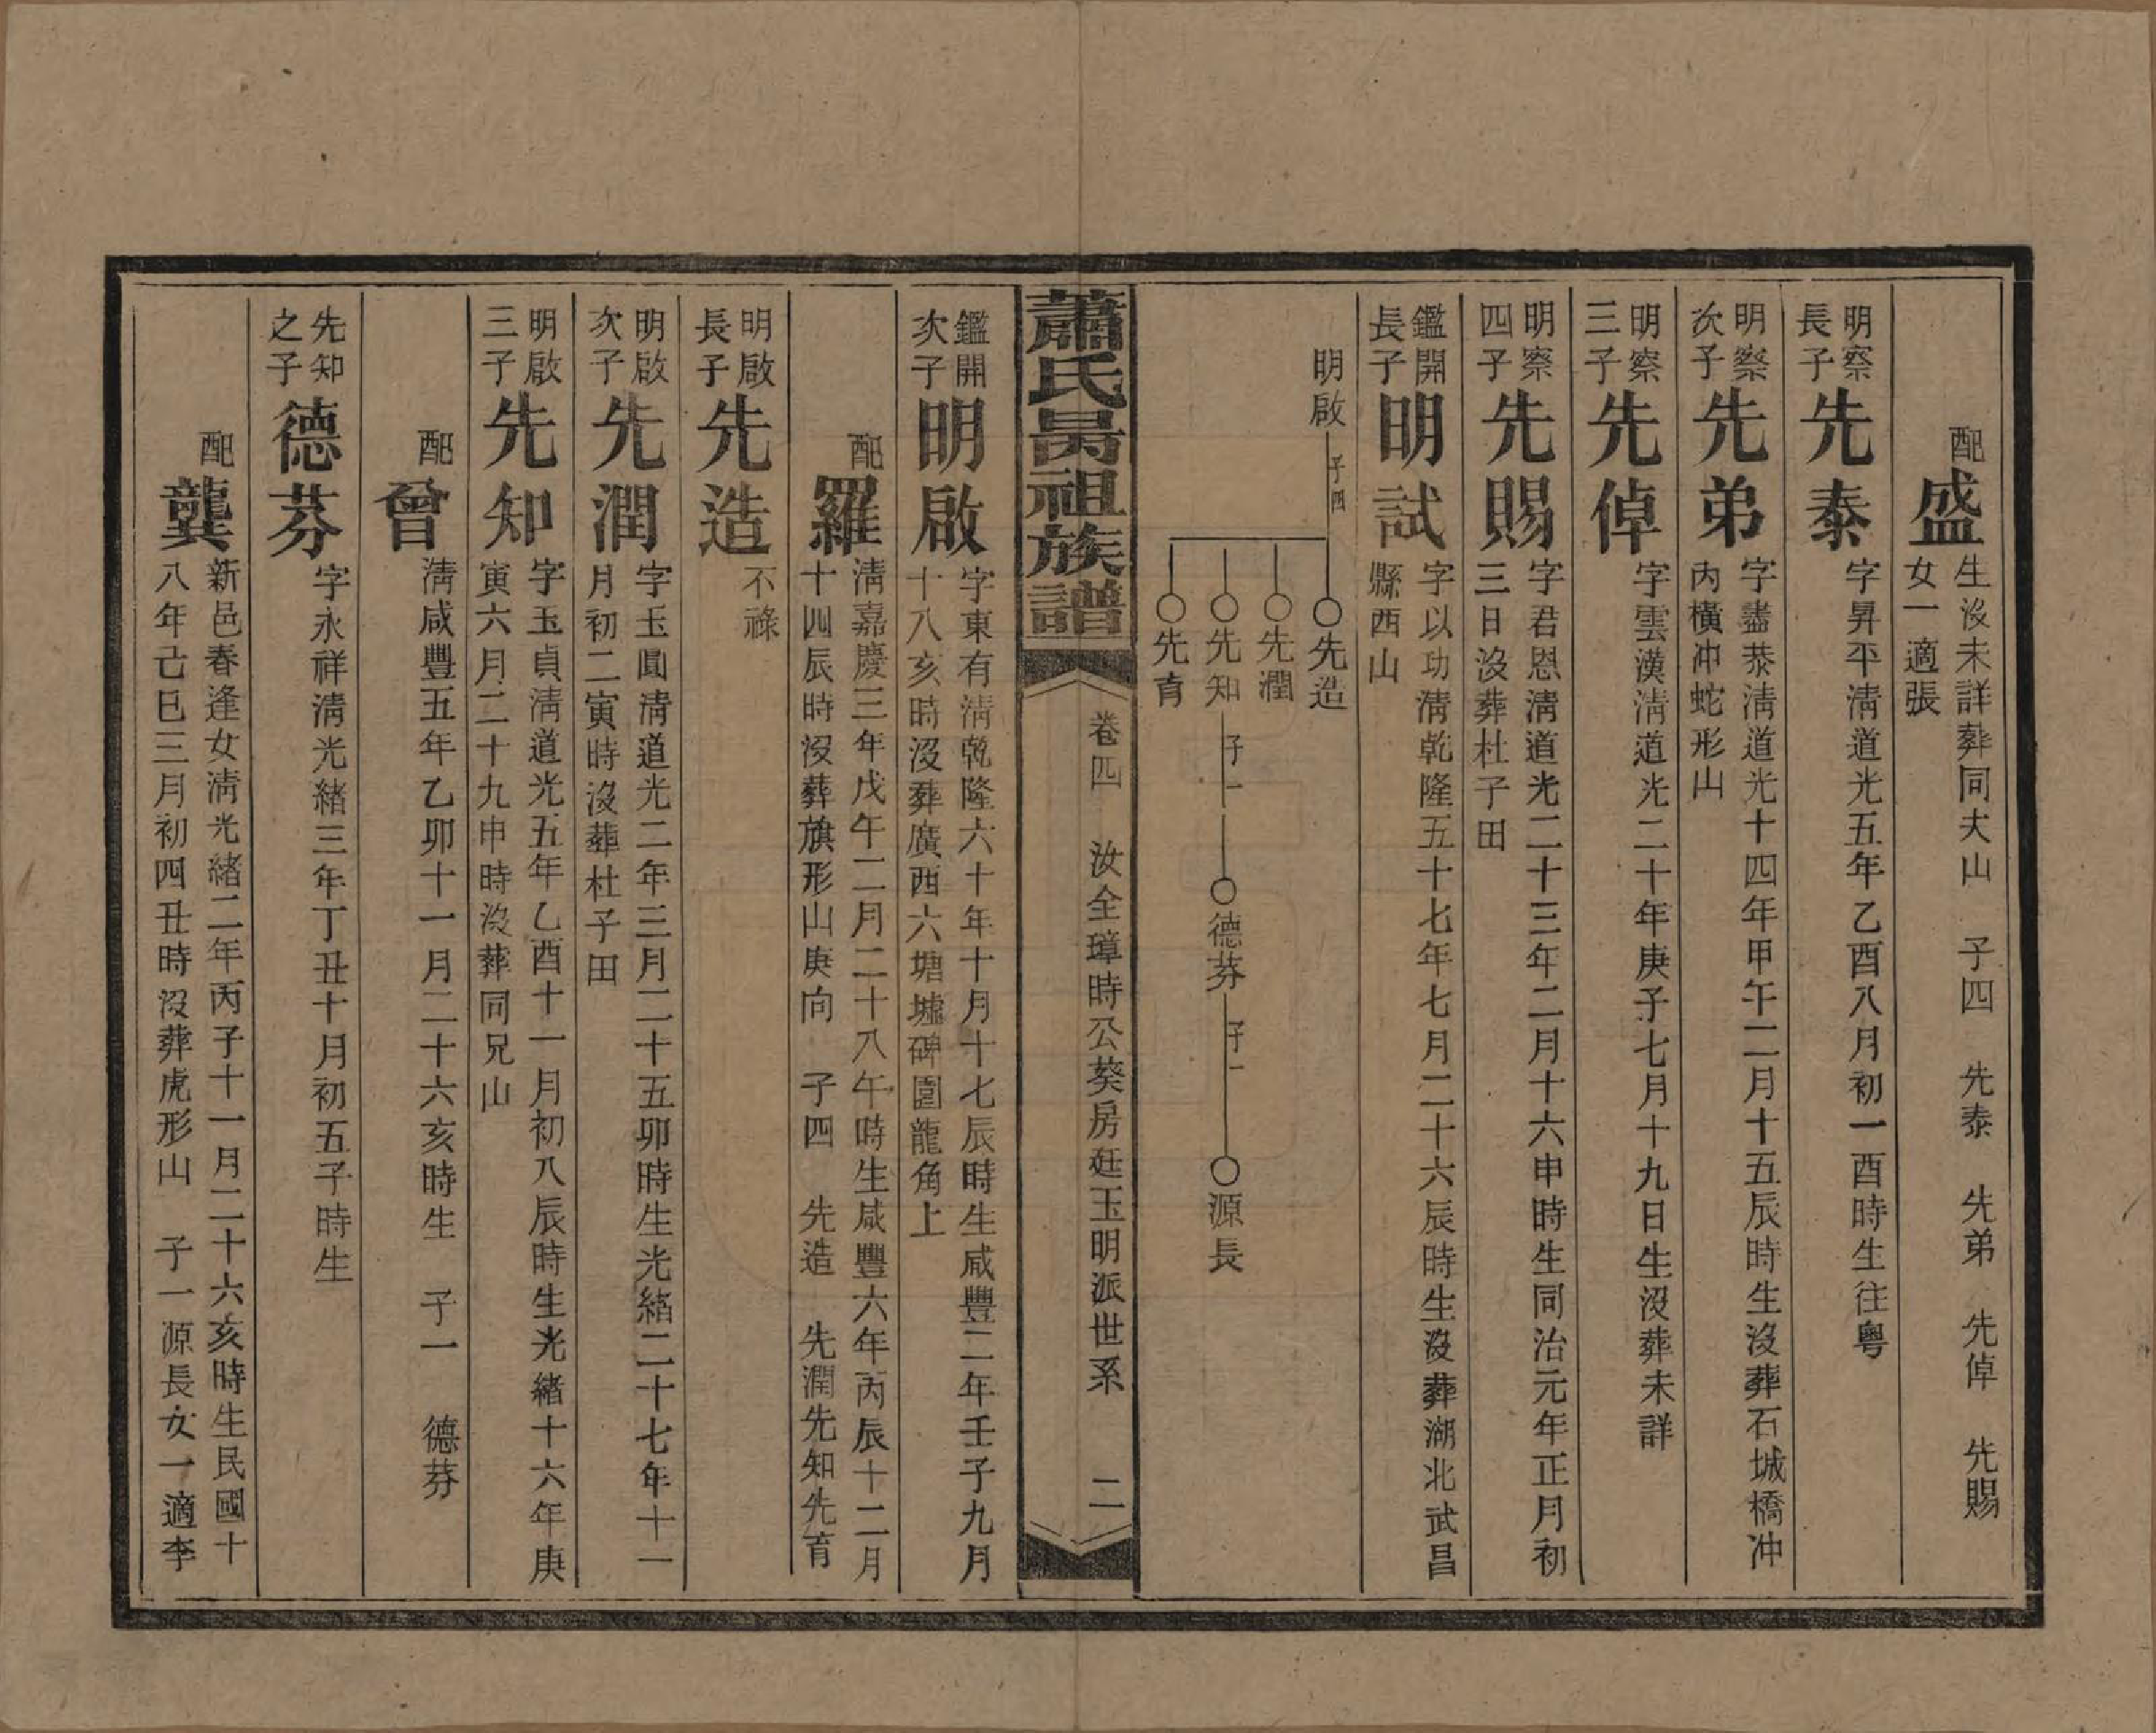 配盛生沒未詳葬同大山 子四 先泰 先弟 先倬 先賜
女一適張
明察長子先泰字昇平淸道光五年乙酉八月初一酉時生往粤
明察次子先弟字盡恭淸道光十四年甲午二月十五辰時生沒葬石城橋冲
內橫冲蛇形山
明察三子先倬字雲漢淸道光二十年庚子七月十九日生沒葬未詳
明察四子先賜字君恩淸道光二十三年二月十六申時生同治元年正月初
三日沒葬杜子田
鑑開長子明試字以功淸乾隆五十七年七月二十六辰時生沒葬湖北武昌
縣西山
明啟 子四 先造
先潤
先知 子一 德芬 子一 源長
先育
蕭氏昺祖族譜 卷四 汝全璋時公葵房廷玉明派世系 二
鑑開次子明啟字東有淸乾隆六十年十月十七辰時生咸豐二年壬子九月
十八亥時沒葬廣西六塘墟碑圍龍角上
配羅淸嘉慶三年戊午二月二十八午時生咸豐六年丙辰十二月
十四辰時沒葬旗形山庚向 子四 先造 先潤先知先育
明啟長子先造不祿
明啟次子先潤字玉圓淸道光二年三月二十五卯時生光緒二十七年十一
月初二寅時沒葬杜子田
明啟三子先知字玉貞淸道光五年乙酉十一月初八辰時生光緒十六年庚
寅六月二十九申時沒葬同兄山
配曾淸咸豐五年乙卯十一月二十六亥時生 子一 德芬
先知之子德芬字永祥淸光緒三年丁丑十月初五子時生
配龔新邑春逢女淸光緒二年丙子十一月二十六亥時生民國十
八年己巳三月初四丑時沒葬虎形山 子一源長女一適李